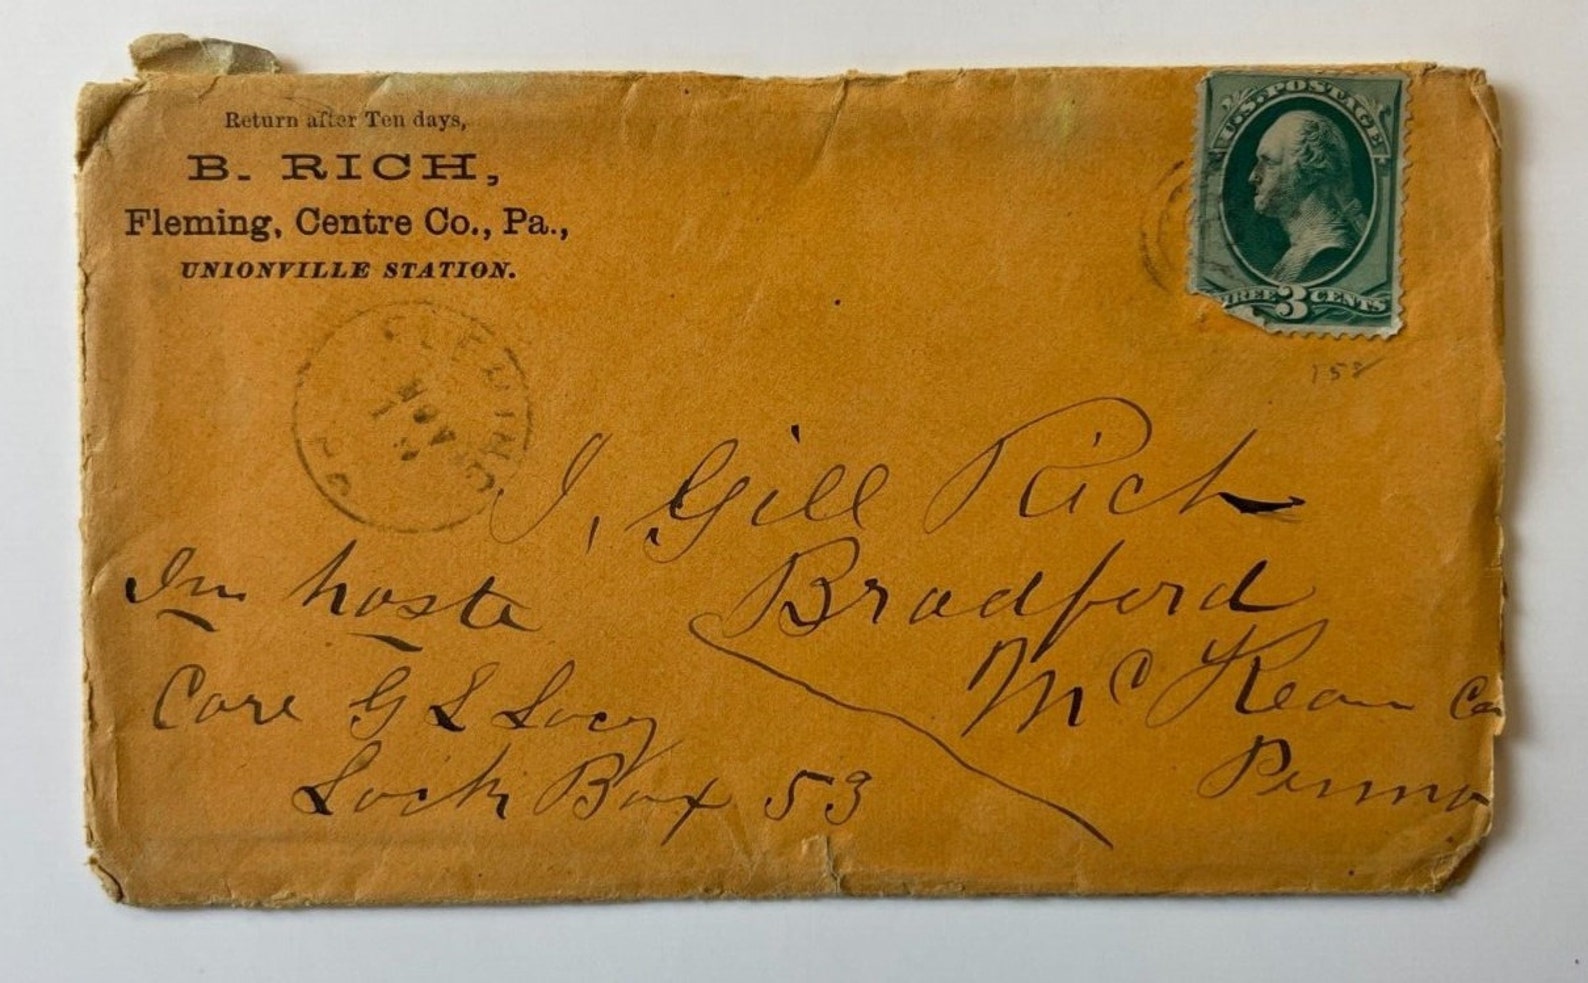 Return after Ten days,
B. RICH,
Fleming, Centre Co., Pa.,
UNIONVILLE STATION.
U.S. POSTAGE
THREE 3 CENTS
158
FLEMING
NOV
PA
J. Gill Rich
In haste
Bradford
McKean Co
Care G L Lacy
Penna
Lock Box 53